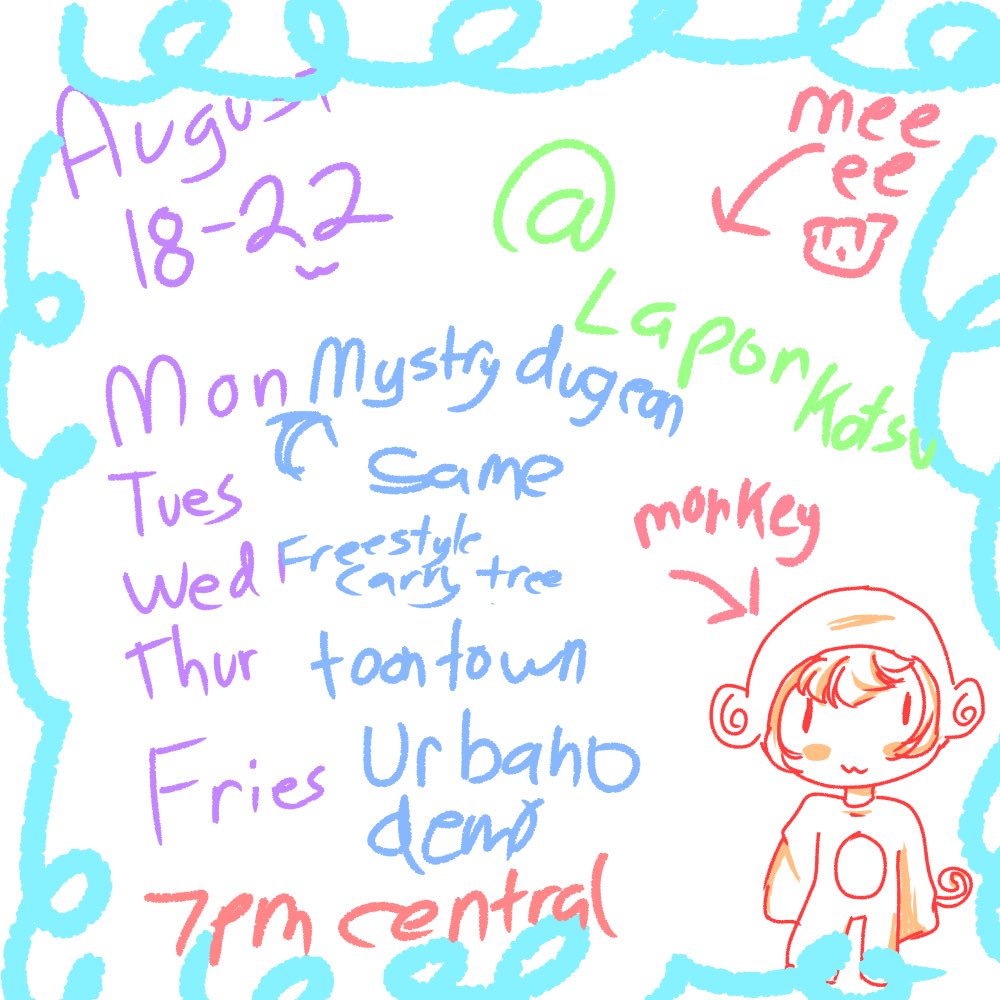 August
18-22
@
Lapor
Kotsu
mee
ee
Mon Mystry dugeon
Tues same
Wed Freestyle
carry tree
Thur toontown
Fries Urbano
demo
7pm central
monkey